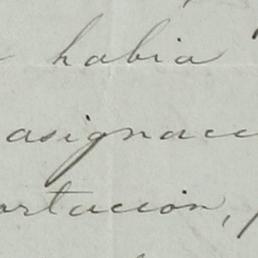 habia
asignacc
ortacion,